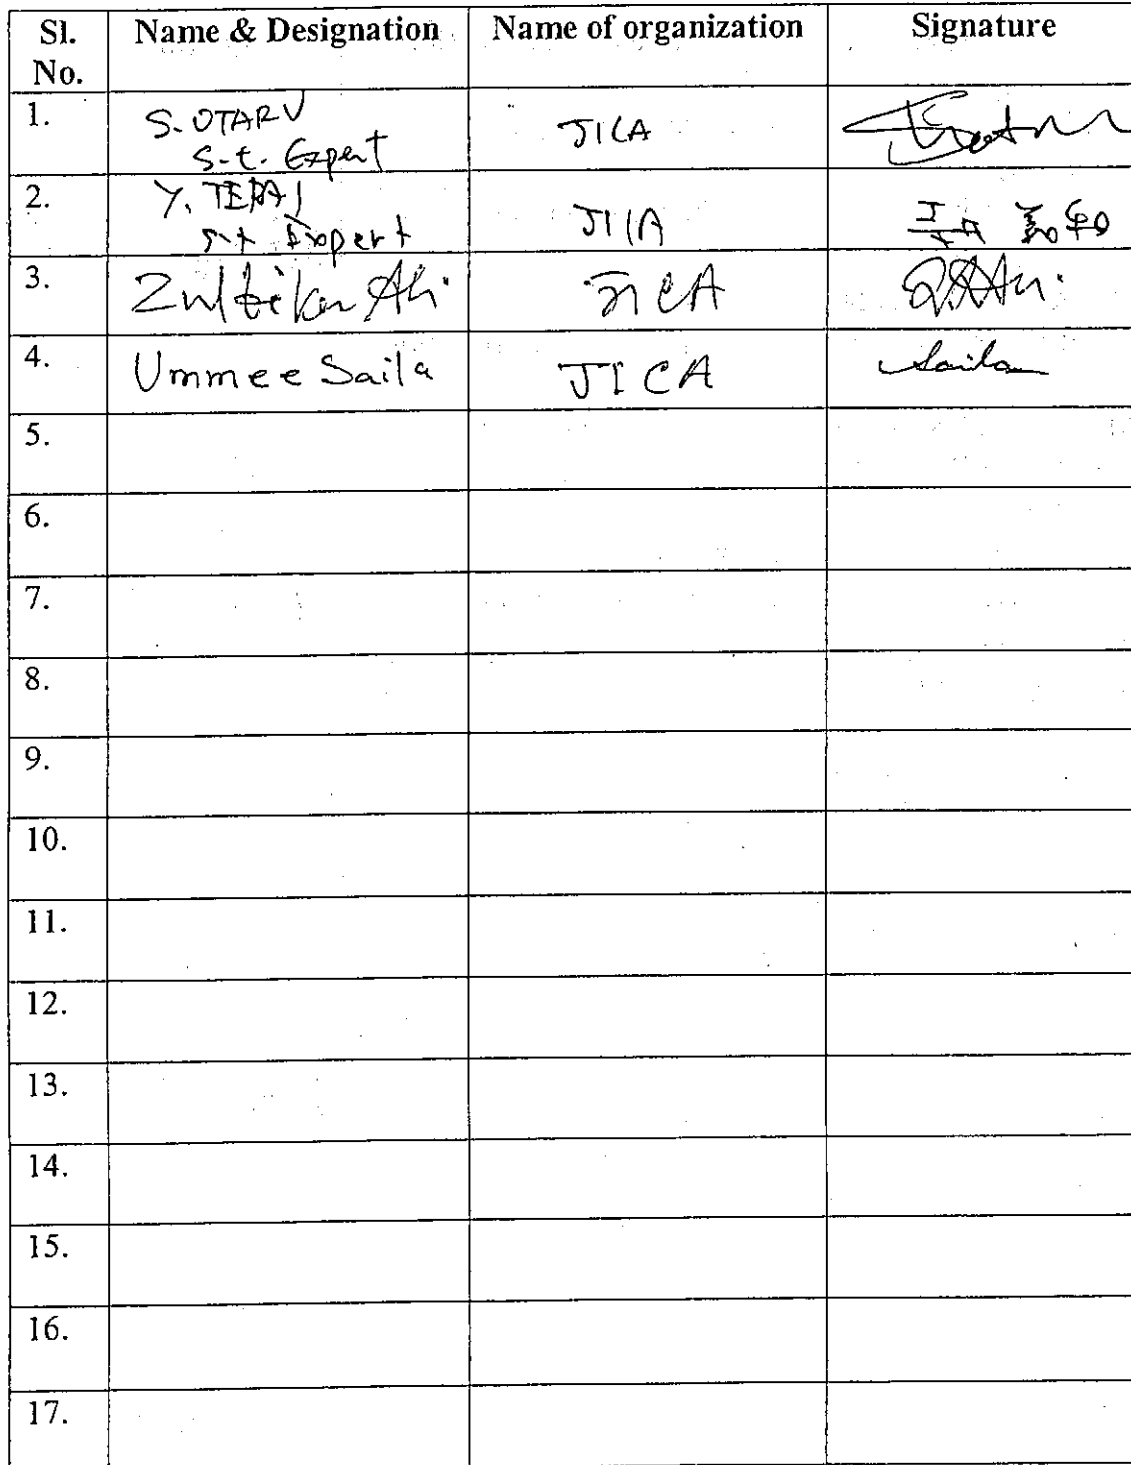 Sl. No. Name & Designation Name of organization Signature
1. S. OTARU JICA
S-t. Expert
2. Y. TERAI JICA
s-t Expert
3. Zulfikar Ali JICA
4. Ummee Saila JICA Saila
5.
6.
7.
8.
9.
10.
11.
12.
13.
14.
15.
16.
17.